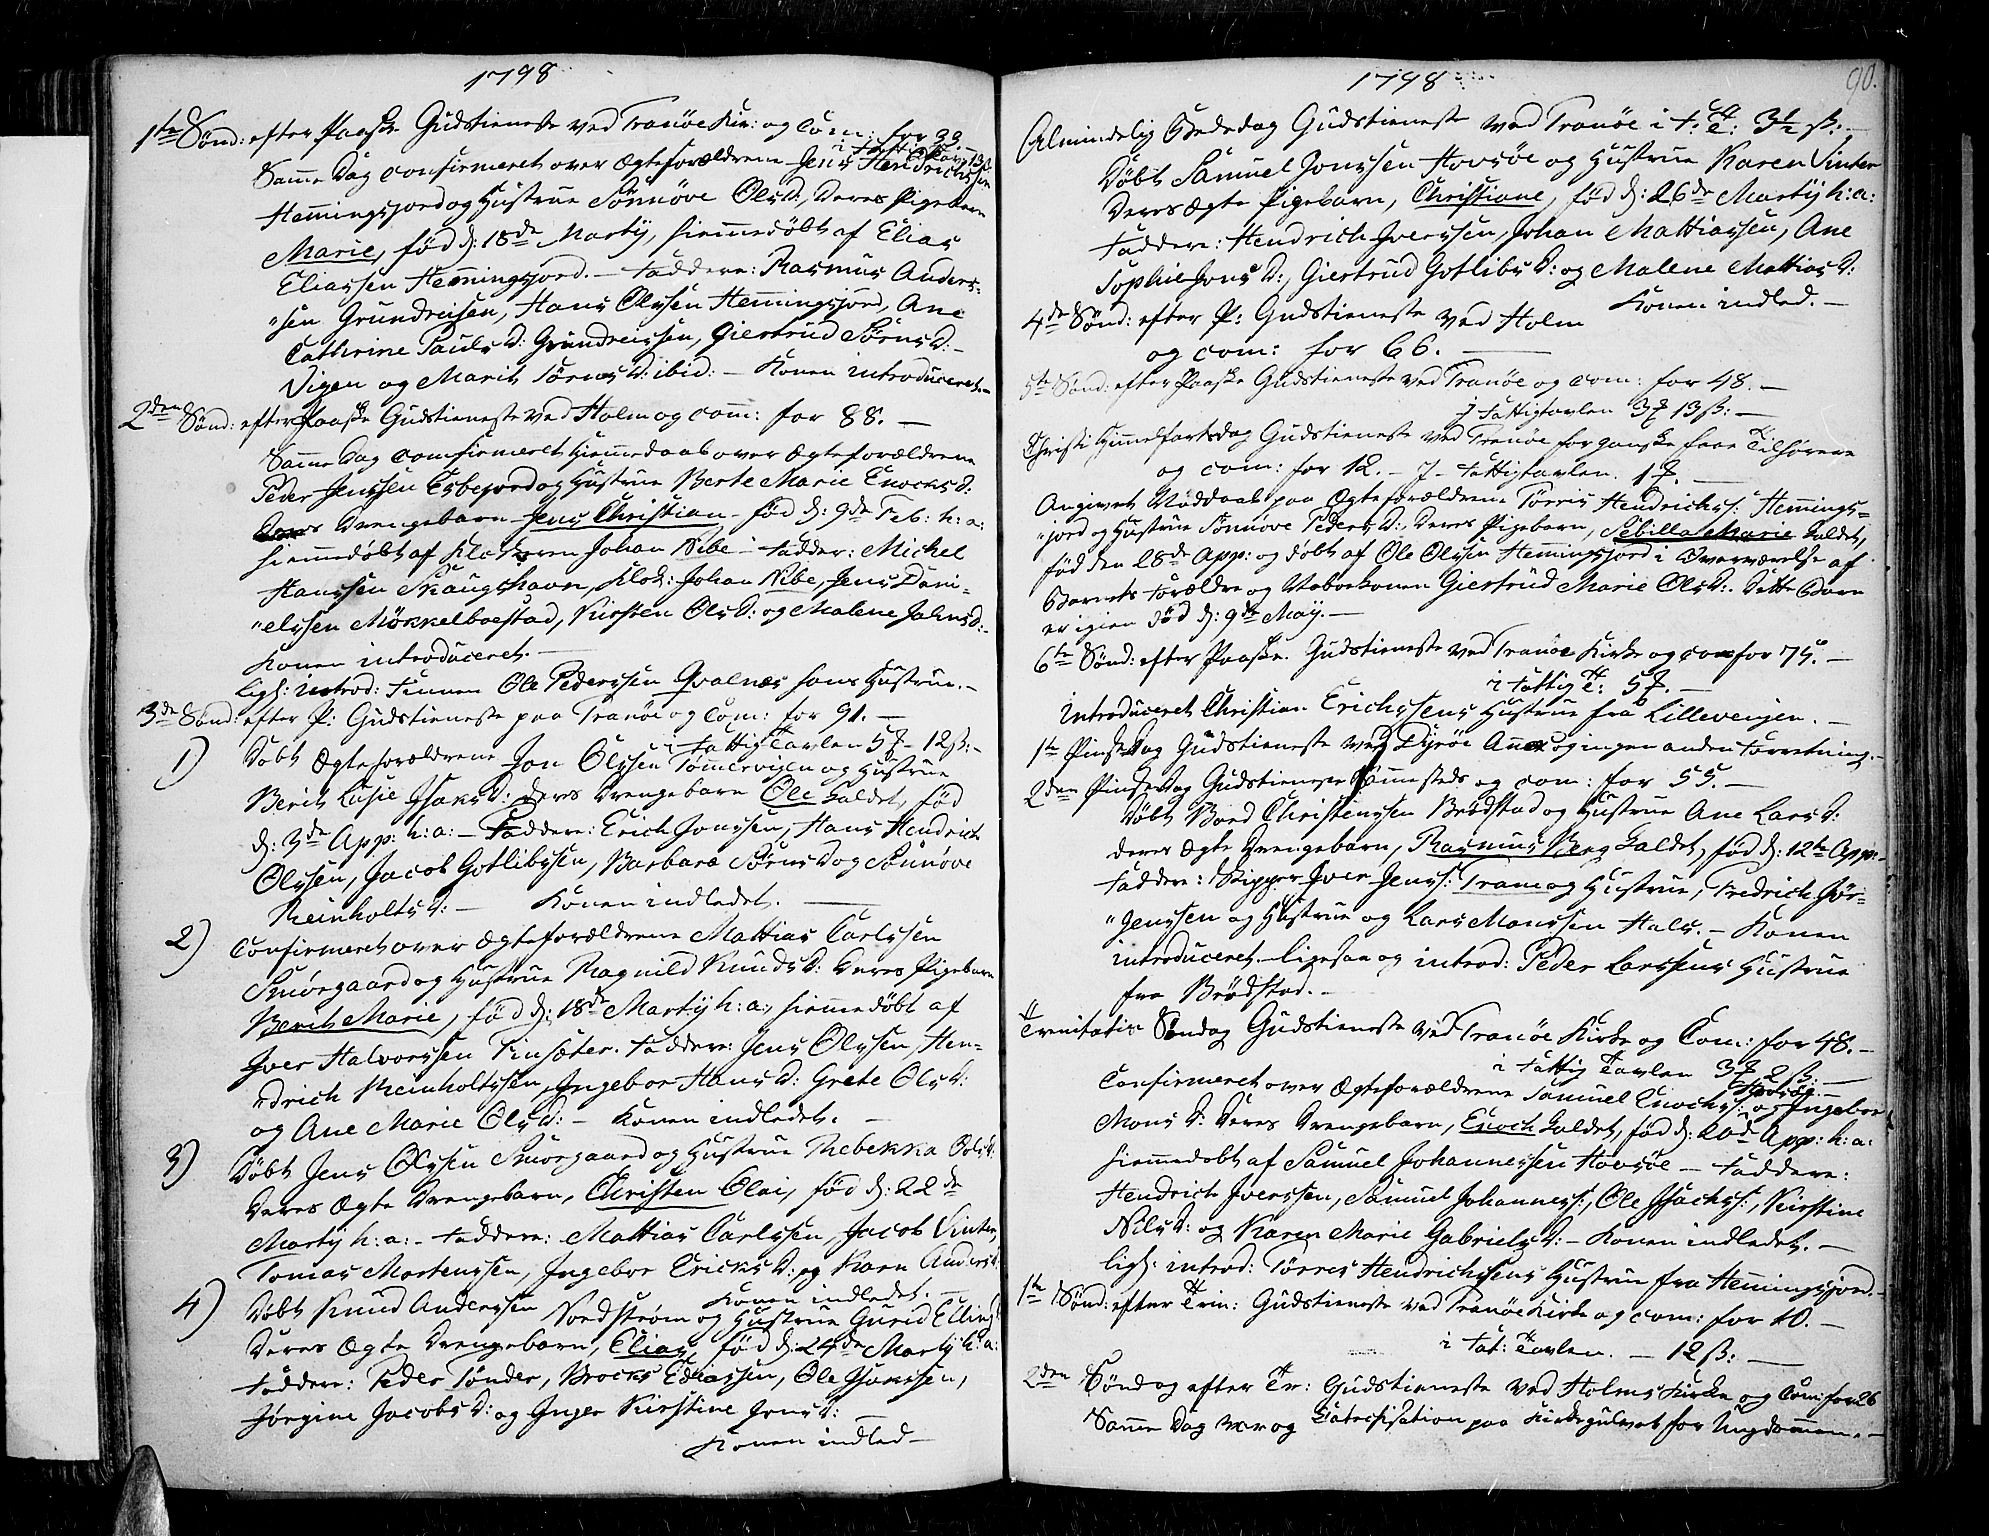 1798
1te Sønd: efter Paaske Gudstieneste ved Tranøe Kir: og Com: for 39.
i Fattig Tavl 13 ß
Samme Dag confirmeret over Ægteforældrene Jens Hendrichsen
Hemingsjord og Hustrue Sønnøve Olsd:, deres Pigebarn
Marie, fød d: 18de Martÿ, hiemmedøbt af Elias
Eliassen Hemingsjord. – Faddere: Rasmus Anders-
"sen Grundreisen, Hans Olssen Hemingsjord, Ane
Cathrine Pauls d: Grundreissen, Giertrud Sørnsd: –
Vigen og Marit Sørnsd: ibid: – Konen introduceret –
2den Sønd: efter Paaske Gudstieneste ved Holm og Com: for 88. –
Samme Dag Confirmeret Hiemmedaab over Ægteforældrene
Peder Jenssen Esbejord og Hustrue Berte Marie Enocksd:
Drengebarn Jens Christian – fød d: 9de Feb: h: a:
hiemmedøbt af Klokkeren Johan Nibe – Fadder: Michel
Hanssen Skaugshavn, Klok: Johan Nibe, Jens Dani-
"elssen Mökkelboestad, Kirsten Olsd: og Malene Jahnsd: –
Konen introduceret. –
Ligs: introd: Finnen Ole Pederssen Qvalnæs hans Hustrue. –
3de Sønd: efter P: Gudstieneste paa Tranöe og Com: for 91. –
i Fattig Tavlen 5 – 12 ß: –
1) Døbt Ægteforældrene Jon Olssen Tömmervigen og Hustrue
Berit Lusie Isaksd: deres Drengebarn Ole kaldet, fød
d: 3de App: h: a: – Faddere: Erich Jonssen, Hans Hendrich
Olssen, Jacob Gotlibssen, Barbara Sørnsd og Sönnöve
Reinholtsd: – Konen indledet. –
2) Confirmeret over Ægteforældrene Mattias Carlssen
Smörgaard og Hustrue Ragnild Knudsd: deres Pigebarn
Berit Marie, fød d: 18de Martÿ h: a:, hiemmedøbt af
Iver Halvorssen Finsæter. Faddere: Jens Olssen, Hen-
"drich Reinholtssen, Ingebor Hansd: Grete Olsd:
og Ane Marie Olsd: – Konen indledet. –
3) Døbt Jens Olssen Smörgaard og Hustrue Rebekka
Deres Ægte Drengebarn, Christen Olai, fød d: 22de
Martÿ h: a: – Faddere: Mattias Carlssen, Jacob Vinter,
Tomas Mortenssen, Ingebor Ericksd: og Karn Andersd:
Konen indledet. –
4) Døbt Knud Anderssen Nordstrøm og Hustrue Gurid Ellingsd
Deres Ægte Drengebarn, Elias, fød d: 24de Martÿ h: a:
Faddere: Peder Tönder, Ole Isakssen,
Jörgine Jacobsd: og Inger Kirstine Jonsd:
Konen indled –
1798
90.
Almindelig Bededag Gudstieneste ved Tranöe i F: T: 3½ ß: –
Døbt Samuel Jonssen Hovsöe og Hustrue Karen Vinter
Deres Ægte Pigebarn, Christiane, fød d: 26de Martÿ h: a:
Faddere: Hendrich Iverssen, Johan Mattiassen, Ane
Sophie Jonsd:, Giertrud Gotlibsd: og Malene Mattiasd:
Konen indled. –
4de Sønd: efter P: Gudstieneste ved Holm
og Com: for 66. –
5te Sønd: efter Paaske Gudstieneste ved Tranöe og Com: for 48. –
I Fattigtavlen 3 13 ß: –
Christi Himmelfartsdag Gudstieneste ved Tranöe for ganske faae Tilhørere
og Com: for 12. – I Fattigtavlen. 1 –
Angivet Nøddaab paa Ægteforældrene Törris Hendrichs: Hemings=
"jord og Hustrue Sönnöve Pedersd:, deres Pigebarn, Sebilla Marie kaldet,
fød den 28de App: og døbt af Ole Olssen Hemingsjord i Overværelse af
Barnets Forældre og Naboekonen Giertrud Marie Olsd:. Dette Barn
er igien död d: 9de Maÿ. –
6te Sønd: efter Paaske. Gudstieneste ved Tranöe Kirke og Com for 75. –
i Fattig T: 5 –
Introduceret Christian Erichssens Hustrue fra Lillevergen. –
1te Pinsedag Gudstieneste ved Dÿröe Annex og ingen anden Forretning. –
2den Pinsedag Gudstieneste samme steds og Com: for 55. –
Døbt Bord Christenssen Brödstad og Hustrue Ane Larsd:
deres Ægte Drengebarn, Rasmus Berg kaldet, fød d: 12te App: –
Faddere: Skipper Iver Jens: Trane og Hustrue, Fredrich Jör-
"Jenssen og Hustrue og Lars Monssen Hals. – Konen
introduceret. – Ligesaa og introd: Peder Larssens Hustrue
fra Brödstad. –
Trinitatis Søndag Gudstieneste ved Tranöe Kirke og Com: for 48. –
i Fattig Tavlen 3 2 ß: –
Confirmeret over Ægteforældrene Samuel Enochs: Hovsöe og Ingebor
Monsd: deres Drengebarn, Enoch kaldet, fød d: 20de App: h: a:
hiemmedøbt af Samuel Johannessen Hovsöe – Faddere:
Hendrich Iverssen, Samuel Johanness:, Ole Isachs:, Kirstine
Nilsd: og Karen Marie Gabrielsd: – Konen indledet. –
Ligs: introd: Törres Hendrichsens Hustrue fra Hemingsjord. –
1te Sønd: efter Trin: Gudstieneste ved Tranöe Kirke og Com: for 10. –
i Fat: Tavlen. – 12 ß: –
2den Söndag efter Tr: Gudstieneste ved Holms Kirke og Com: for 26
Samme Dag var og Catechisation paa Kirkegulvet for Ungdommen. –